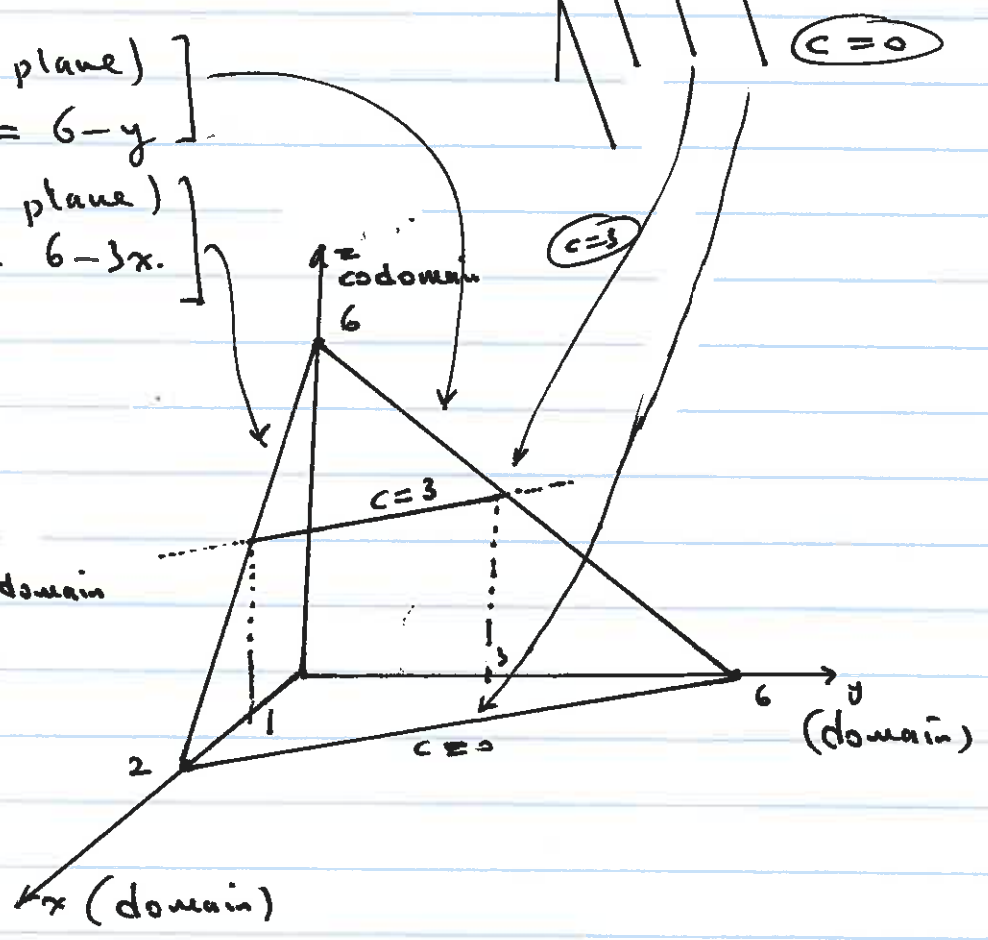 plane)
= 6-y
plane)
6-3x.
c=0
c=3
z
codomain
6
c=3
domain
3
1
2
c=0
6
y
(domain)
x (domain)